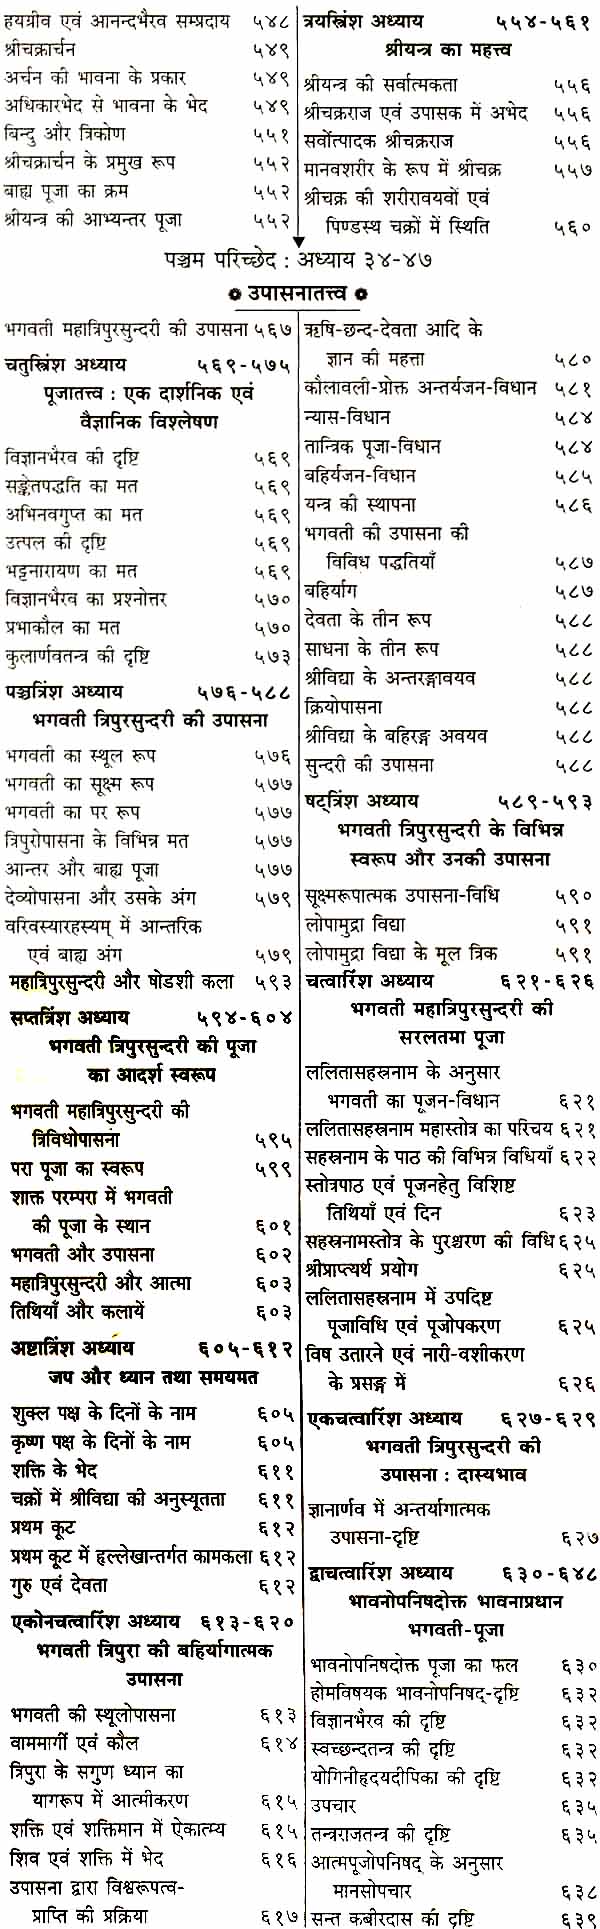 हयग्रीव एवं आनन्दभैरव सम्प्रदाय ५४८
श्रीचक्रार्चन ५४९
अर्चन की भावना के प्रकार ५४९
अधिकारभेद से भावना के भेद ५४९
बिन्दु और त्रिकोण ५५१
श्रीचक्रार्चन के प्रमुख रूप ५५२
बाह्य पूजा का क्रम ५५२
श्रीयन्त्र की आभ्यन्तर पूजा ५५२
त्रयस्त्रिंश अध्याय ५५४-५६१
श्रीयन्त्र का महत्त्व
श्रीयन्त्र की सर्वात्मकता ५५६
श्रीचक्रराज एवं उपासक में अभेद ५५६
सर्वोत्पादक श्रीचक्रराज ५५६
मानवशरीर के रूप में श्रीचक्र ५५७
श्रीचक्र की शरीरावयवों एवं
पिण्डस्थ चक्रों में स्थिति ५६०
पञ्चम परिच्छेद : अध्याय ३४-४७
❁ उपासनातत्त्व ❁
भगवती महात्रिपुरसुन्दरी की उपासना ५६७
चतुस्त्रिंश अध्याय ५६९-५७५
पूजातत्त्व : एक दार्शनिक एवं
वैज्ञानिक विश्लेषण
विज्ञानभैरव की दृष्टि ५६९
सङ्केतपद्धति का मत ५६९
अभिनवगुप्त का मत ५६९
उत्पल की दृष्टि ५६९
भट्टनारायण का मत ५६९
विज्ञानभैरव का प्रश्नोत्तर ५७०
प्रभाकौल का मत ५७०
कुलार्णवतन्त्र की दृष्टि ५७३
पञ्चत्रिंश अध्याय ५७६-५८८
भगवती त्रिपुरसुन्दरी की उपासना
भगवती का स्थूल रूप ५७६
भगवती का सूक्ष्म रूप ५७७
भगवती का पर रूप ५७७
त्रिपुरोपासना के विभिन्न मत ५७७
आन्तर और बाह्य पूजा ५७७
देव्योपासना और उसके अंग ५७९
वरिवस्यारहस्यम् में आन्तरिक
एवं बाह्य अंग ५७९
महात्रिपुरसुन्दरी और षोडशी कला ५९३
सप्तत्रिंश अध्याय ५९४-६०४
भगवती त्रिपुरसुन्दरी की पूजा
का आदर्श स्वरूप
भगवती महात्रिपुरसुन्दरी की
त्रिविधोपासना ५९५
परा पूजा का स्वरूप ५९९
शाक्त परम्परा में भगवती
की पूजा के स्थान ६०१
भगवती और उपासना ६०२
महात्रिपुरसुन्दरी और आत्मा ६०३
तिथियाँ और कलायें ६०३
अष्टात्रिंश अध्याय ६०५-६१२
जप और ध्यान तथा समयमत
शुक्ल पक्ष के दिनों के नाम ६०५
कृष्ण पक्ष के दिनों के नाम ६०५
शक्ति के भेद ६११
चक्रों में श्रीविद्या की अनुस्यूतता ६११
प्रथम कूट ६१२
प्रथम कूट में हृल्लेखान्तर्गत कामकला ६१२
गुरु एवं देवता ६१२
एकोनचत्वारिंश अध्याय ६१३-६२०
भगवती त्रिपुरा की बहिर्यागात्मक
उपासना
भगवती की स्थूलोपासना ६१३
वाममार्गी एवं कौल ६१४
त्रिपुरा के सगुण ध्यान का
यागरूप में आत्मीकरण ६१५
शक्ति एवं शक्तिमान में ऐकात्म्य ६१५
शिव एवं शक्ति में भेद ६१६
उपासना द्वारा विश्वरूपत्व-
प्राप्ति की प्रक्रिया ६१७
ऋषि-छन्द-देवता आदि के
ज्ञान की महत्ता ५८०
कौलावली-प्रोक्त अन्तर्यजन-विधान ५८१
न्यास-विधान ५८४
तान्त्रिक पूजा-विधान ५८४
बहिर्यजन-विधान ५८५
यन्त्र की स्थापना ५८६
भगवती की उपासना की
विविध पद्धतियाँ ५८७
बहिर्याग ५८७
देवता के तीन रूप ५८८
साधना के तीन रूप ५८८
श्रीविद्या के अन्तरङ्गावयव ५८८
क्रियोपासना ५८८
श्रीविद्या के बहिरङ्ग अवयव ५८८
सुन्दरी की उपासना ५८८
षट्त्रिंश अध्याय ५८९-५९३
भगवती त्रिपुरसुन्दरी के विभिन्न
स्वरूप और उनकी उपासना
सूक्ष्मरूपात्मक उपासना-विधि ५९०
लोपामुद्रा विद्या ५९१
लोपामुद्रा विद्या के मूल त्रिक ५९१
चत्वारिंश अध्याय ६२१-६२६
भगवती महात्रिपुरसुन्दरी की
सरलतमा पूजा
ललितासहस्रनाम के अनुसार
भगवती का पूजन-विधान ६२१
ललितासहस्रनाम महास्तोत्र का परिचय ६२१
सहस्रनाम के पाठ की विभिन्न विधियाँ ६२२
स्तोत्रपाठ एवं पूजनहेतु विशिष्ट
तिथियाँ एवं दिन ६२३
सहस्रनामस्तोत्र के पुरश्चरण की विधि ६२५
श्रीप्राप्त्यर्थ प्रयोग ६२५
ललितासहस्रनाम में उपदिष्ट
पूजाविधि एवं पूजोपकरण ६२५
विष उतारने एवं नारी-वशीकरण
के प्रसङ्ग में ६२६
एकचत्वारिंश अध्याय ६२७-६२९
भगवती त्रिपुरसुन्दरी की
उपासना : दास्यभाव
ज्ञानार्णव में अन्तर्यागात्मक
उपासना-दृष्टि ६२७
द्वाचत्वारिंश अध्याय ६३०-६४८
भावनोपनिषदोक्त भावनाप्रधान
भगवती-पूजा
भावनोपनिषदोक्त पूजा का फल ६३०
होमविषयक भावनोपनिषद्-दृष्टि ६३२
विज्ञानभैरव की दृष्टि ६३२
स्वच्छन्दतन्त्र की दृष्टि ६३२
योगिनीहृदयदीपिका की दृष्टि ६३२
उपचार ६३५
तन्त्रराजतन्त्र की दृष्टि ६३५
आत्मपूजोपनिषद् के अनुसार
मानसोपचार ६३८
सन्त कबीरदास की दृष्टि ६३९